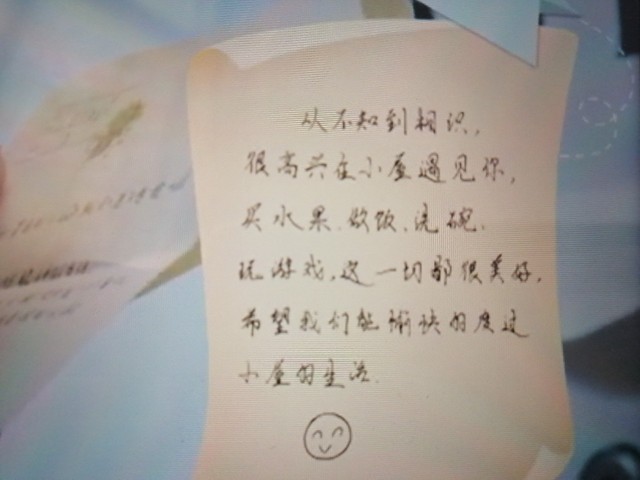 从不知到相识，
很高兴在小屋遇见你，
买水果、做饭、洗碗、
玩游戏，这一切都很美好，
希望我们能愉快的度过
小屋的生活.